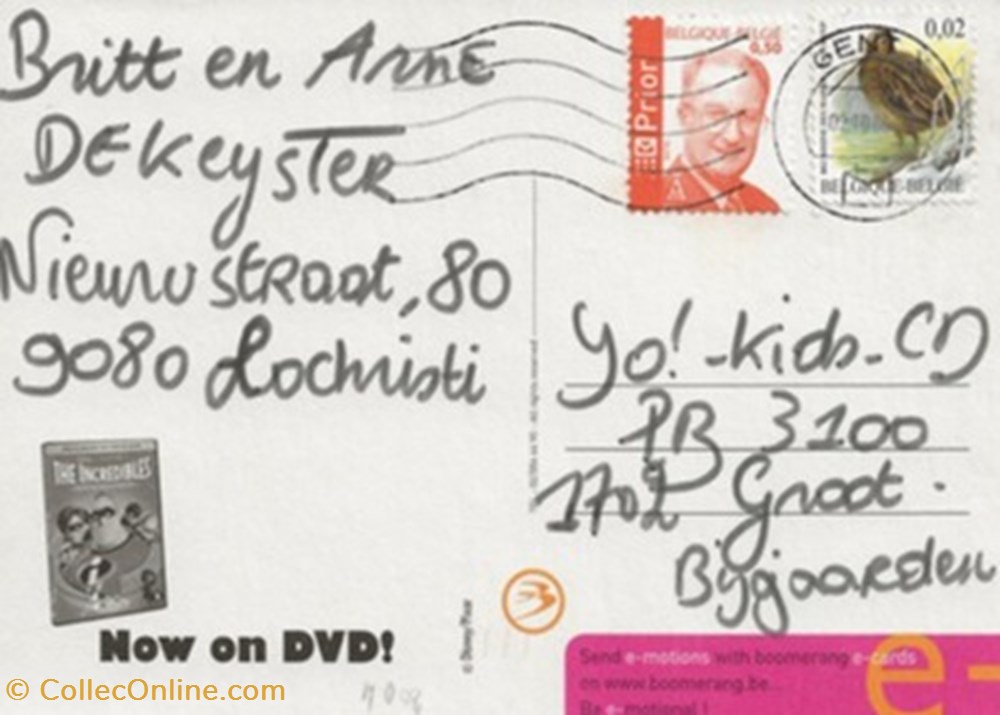 Britt en Arne
DEKeySTER
Nieuwstraat, 80
9080 Lochristi
BELGIQUE-BELGIË
0,50
Prior
GENT
0,02
BELGIQUE-BELGIË
Yo! -Kids-CD
PB 3100
1702 Groot
Bijgaarden
THE INCREDIBLES
Now on DVD!
© Disney/Pixar
Send e-motions with boomerang e-cards
on www.boomerang.be
Be e-motional !
e-
© CollecOnline.com